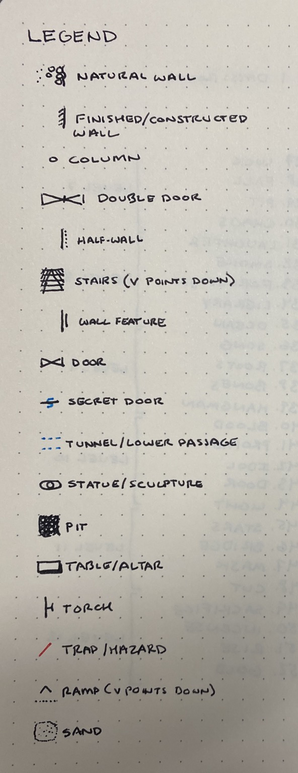 LEGEND
NATURAL WALL
FINISHED/CONSTRUCTED
WALL
COLUMN
DOUBLE DOOR
HALF-WALL
STAIRS (V POINTS DOWN)
WALL FEATURE
DOOR
SECRET DOOR
TUNNEL/LOWER PASSAGE
STATUE/SCULPTURE
PIT
TABLE/ALTAR
TORCH
TRAP/HAZARD
RAMP (V POINTS DOWN)
SAND